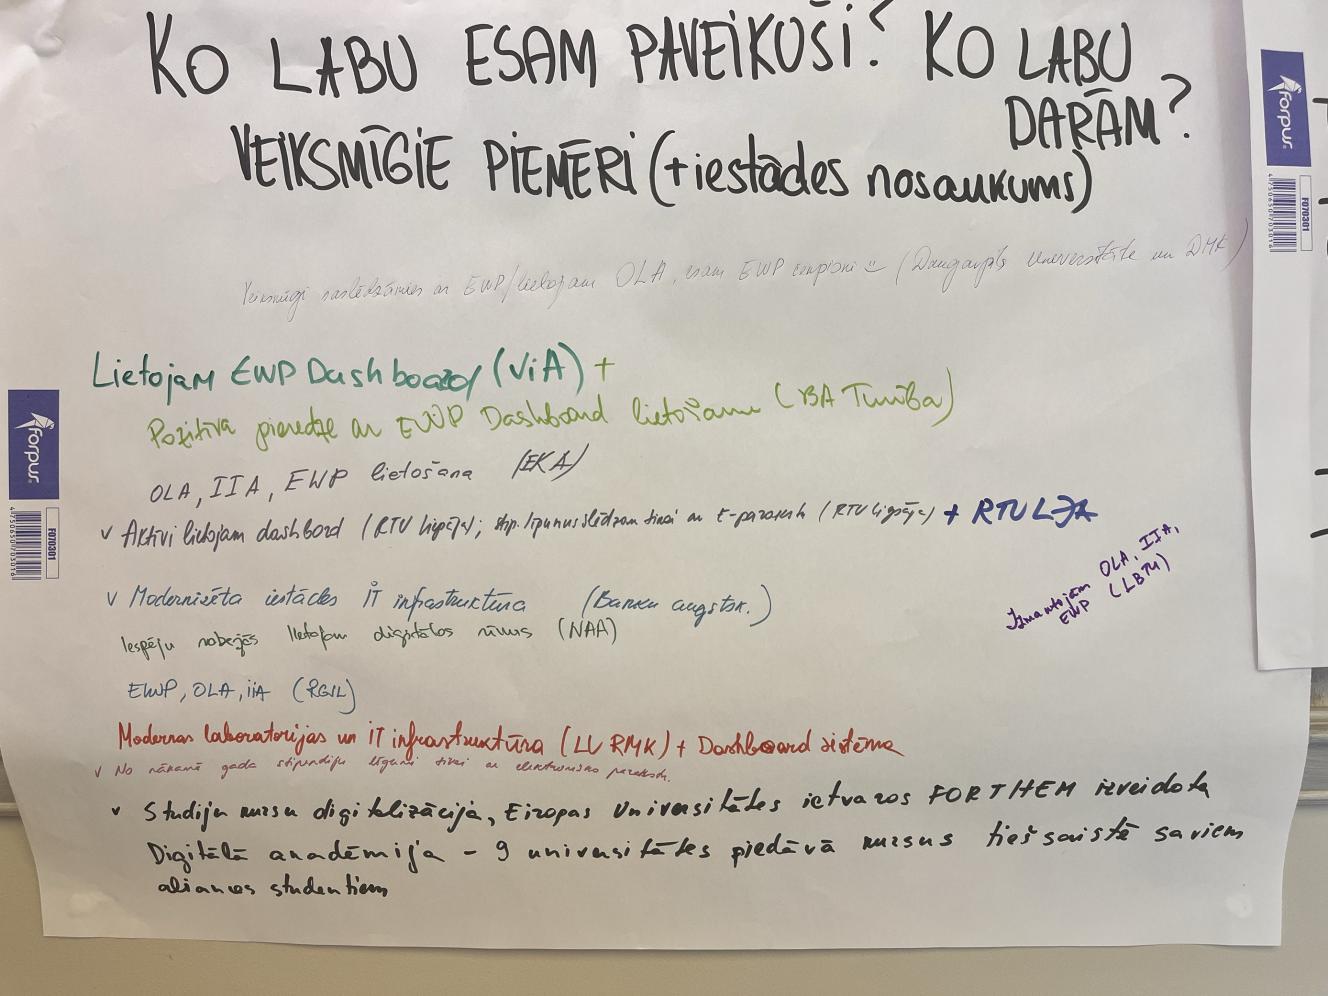 KO LABU ESAM PAVEIKUŠI? KO LABU
DARĀM?
VEIKSMĪGIE PIEMĒRI (+iestādes nosaukums)
Veiksmīgi saslēdzāmies ar EWP/lietojam OLA, esam EWP čempioni (Daugavpils Universitāte un DMK)
Lietojam EWP Dashboard (ViA) +
Pozitīva pieredze ar EWP Dashboard lietošanu (BA Turība)
OLA, IIA, EWP lietošana (EKA)
v Aktīvi lietojam dashbord (RTU Liepāja); stip. līgumus slēdzam tikai ar E-parakstu (RTU Liepāja) + RTU
Izmantojam OLA, IIA,
EWP (LBTU)
v Modernizēta iestādes IT infrastruktūra (Banku augstsk.)
Iespēju robežās lietojam digitālos rīkus (NAA)
EWP, OLA, iiA (RGSL)
Modernas laboratorijas un IT infrastruktūra (LU RMK) + Dashboard sistēma
v No nākamā gada stipendiju līgumi tikai ar elektronisko parakstu.
v Studiju kursu digitalizācija, Eiropas Universitātes ietvaros FORTHEM izveidota
Digitālā akadēmija - 9 universitātes piedāvā kursus tiešsaistē saviem
alianses studentiem
Forpus
F070301
4750650703016
Forpus
F070301
4750650703016